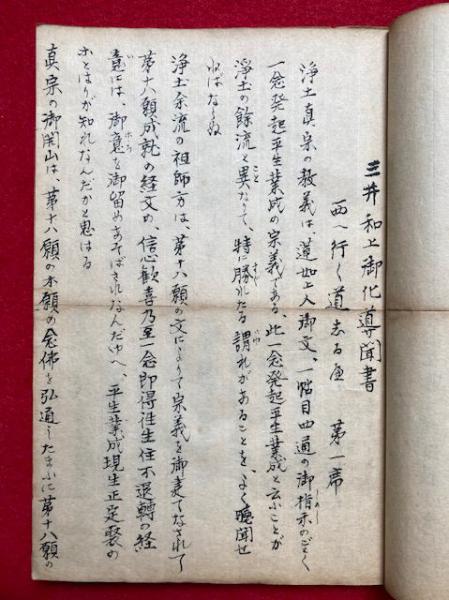 三井和上御化導聞書
西へ行く道志る邊　第一席
浄土真宗の教義は、蓮如上人御文、一帖目四通の御指示のごとく
しめし
一念発起平生業成の宗義である、此一念発起平生業成と云ふことが
浄土の餘流と異なりて、特に勝れたる謂れがあることを、よく聴聞せ
こと
すぐ
いは
ねばならぬ
浄土余流の祖師方は、第十八願の文によりて宗義を御建てなされて
第十八願成就の経文の、信心歓喜乃至一念即得往生住不退轉の経
意には、御意を御留めあそばされなんだゆへ、平生業成現生正定聚の
ことはりが知れなんだかと思はる
真宗の御開山は、第十八願の本願の念佛を弘通したまふに第十八願の